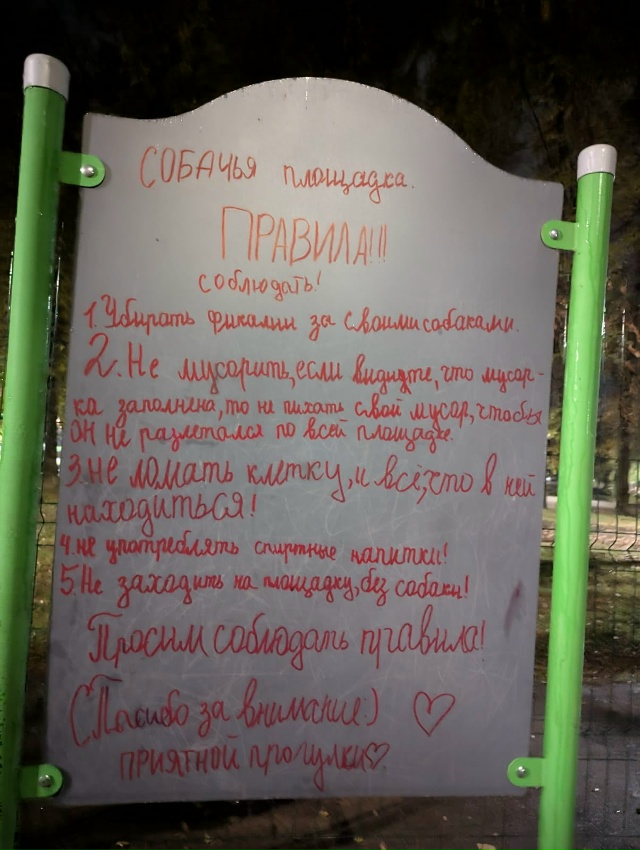 СОБАЧЬЯ площадка.
ПРАВИЛА!!!
соблюдать!
1. Убирать фикалии за своими собаками.
2. Не мусорить, если видидте, что мусор-
ка заполнена, то не пихать свой мусор, чтобы
он не разлетался по всей площадке.
3. Не ломать клетку, и всё, что в ней
находиться!
4. не употреблять спиртные напитки!
5. Не заходить на площадку, без собаки!
Просим соблюдать правила!
(Спасибо за внимание:) ♡
ПРИЯТНОЙ прогулки♡